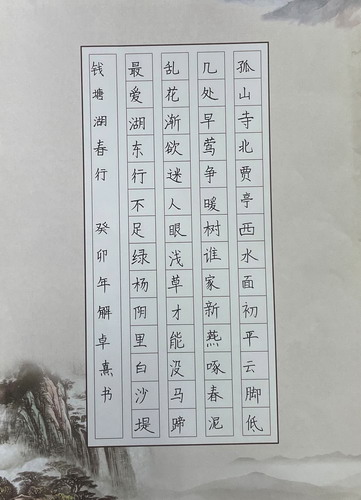 孤山寺北贾亭西水面初平云脚低
几处早莺争暖树谁家新燕啄春泥
乱花渐欲迷人眼浅草才能没马蹄
最爱湖东行不足绿杨阴里白沙堤
钱塘湖春行 癸卯年解卓熹书